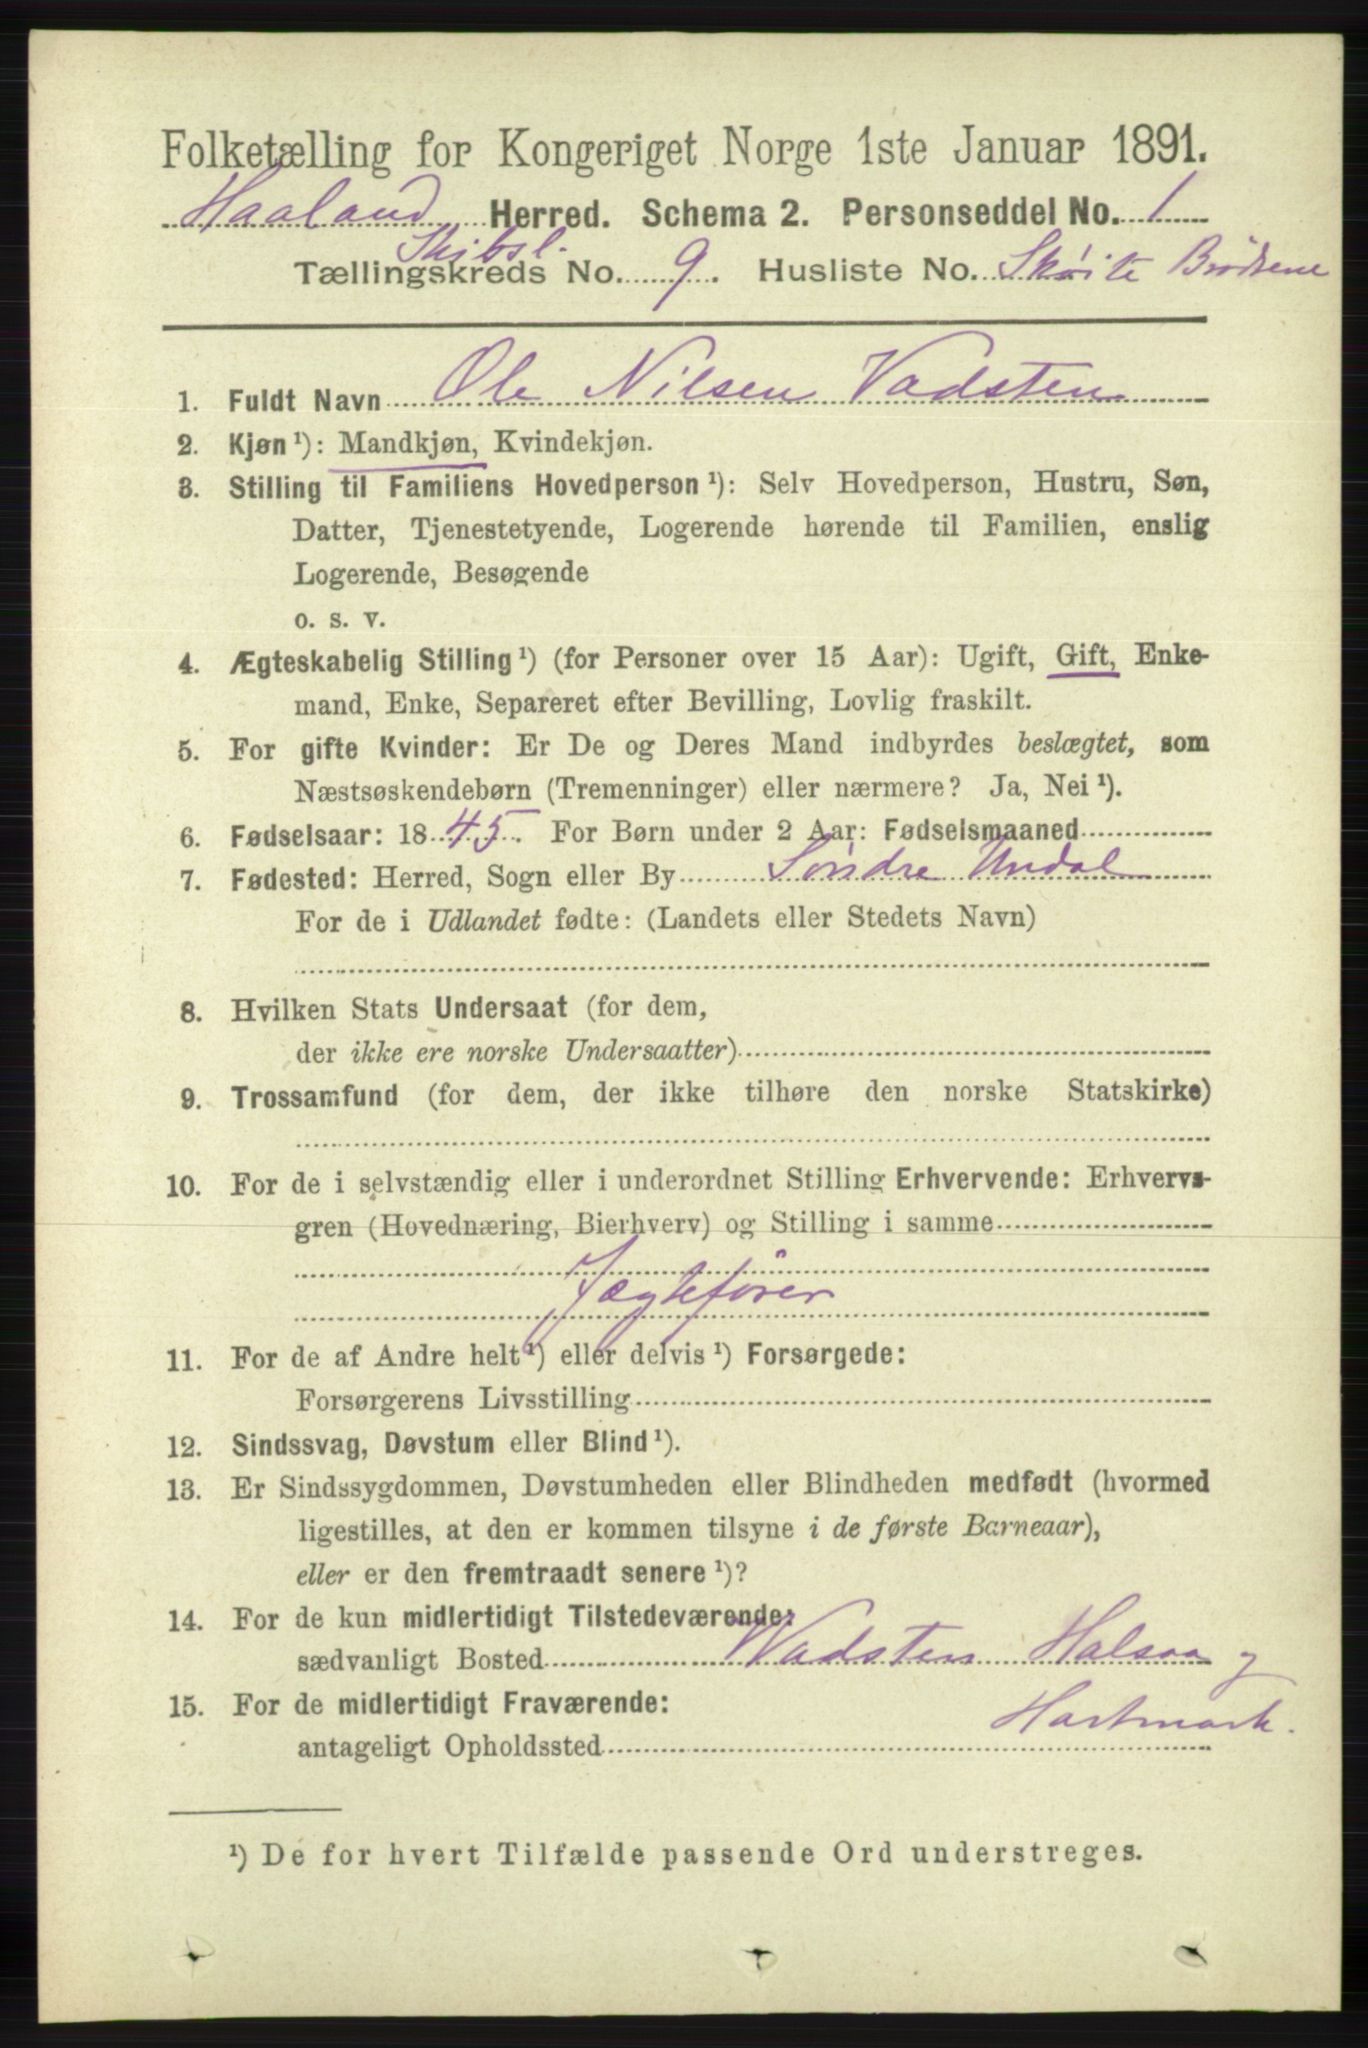 Folketælling for Kongeriget Norge 1ste Januar 1891.
Haaland Herred. Schema 2. Personseddel No. 1
Skibsl.
Tællingskreds No. 9. Husliste No. Skøite Brødrene
1. Fuldt Navn Ole Nilsen Vadsten
2. Kjøn ¹): Mandkjøn, Kvindekjøn.
3. Stilling til Familiens Hovedperson ¹): Selv Hovedperson, Hustru, Søn,
Datter, Tjenestetyende, Logerende hørende til Familien, enslig
Logerende, Besøgende
o. s. v.
4. Ægteskabelig Stilling ¹) (for Personer over 15 Aar): Ugift, Gift, Enke-
mand, Enke, Separeret efter Bevilling, Lovlig fraskilt.
5. For gifte Kvinder: Er De og Deres Mand indbyrdes beslægtet, som
Næstsøskendebørn (Tremenninger) eller nærmere? Ja, Nei ¹).
6. Fødselsaar: 1845. For Børn under 2 Aar: Fødselsmaaned
7. Fødested: Herred, Sogn eller By Søndre Undal
For de i Udlandet fødte: (Landets eller Stedets Navn)
8. Hvilken Stats Undersaat (for dem,
der ikke ere norske Undersaatter)
9. Trossamfund (for dem, der ikke tilhøre den norske Statskirke)
10. For de i selvstændig eller i underordnet Stilling Erhvervende: Erhvervs-
gren (Hovednæring, Bierhverv) og Stilling i samme
Jægtefører
11. For de af Andre helt ¹) eller delvis ¹) Forsørgede:
Forsørgerens Livsstilling
12. Sindssvag, Døvstum eller Blind ¹).
13. Er Sindssygdommen, Døvstumheden eller Blindheden medfødt (hvormed
ligestilles, at den er kommen tilsyne i de første Barneaar),
eller er den fremtraadt senere ¹)?
14. For de kun midlertidigt Tilstedeværende:
sædvanligt Bosted Vadsten Halsaa og
15. For de midlertidigt Fraværende: Hartmark.
antageligt Opholdssted
¹) De for hvert Tilfælde passende Ord understreges.